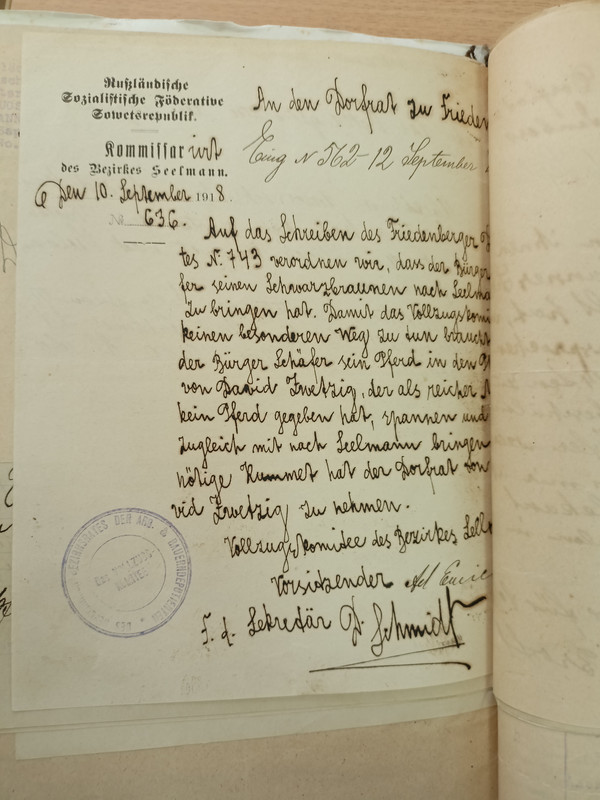 Rußländische
Sozialistische Föderative
Sowetsrepublik.
Kommissariat
des Bezirkes Seelmann.
Den 10. September 1918.
№ 636.
An den Dorfrat zu Frieden
Eing N 562-12 September
Auf das Schreiben des Friedenberger D
tes №. 743 verordnen wir, dass der Bürger
fer seinen Schwarzbraunen nach Seelma
zu bringen hat. Damit das Vollzugskomi
keinen besonderen Weg zu tun braucht
der Bürger Schäfer sein Pferd in den
von David Zwetzig, der als reicher
kein Pferd gegeben hat, spannen und
zugleich mit nach Seelmann bringen
nötige Kummet hat der Dorfrat von
vid Zwetzig zu nehmen.
Vollzugskomitee des Bezirkes Seel
Vorsitzender
F. d. Sekretär D. Schmidt
BEZIRKSRATES DER ARB. & BAUERNDEPUTIERTEN